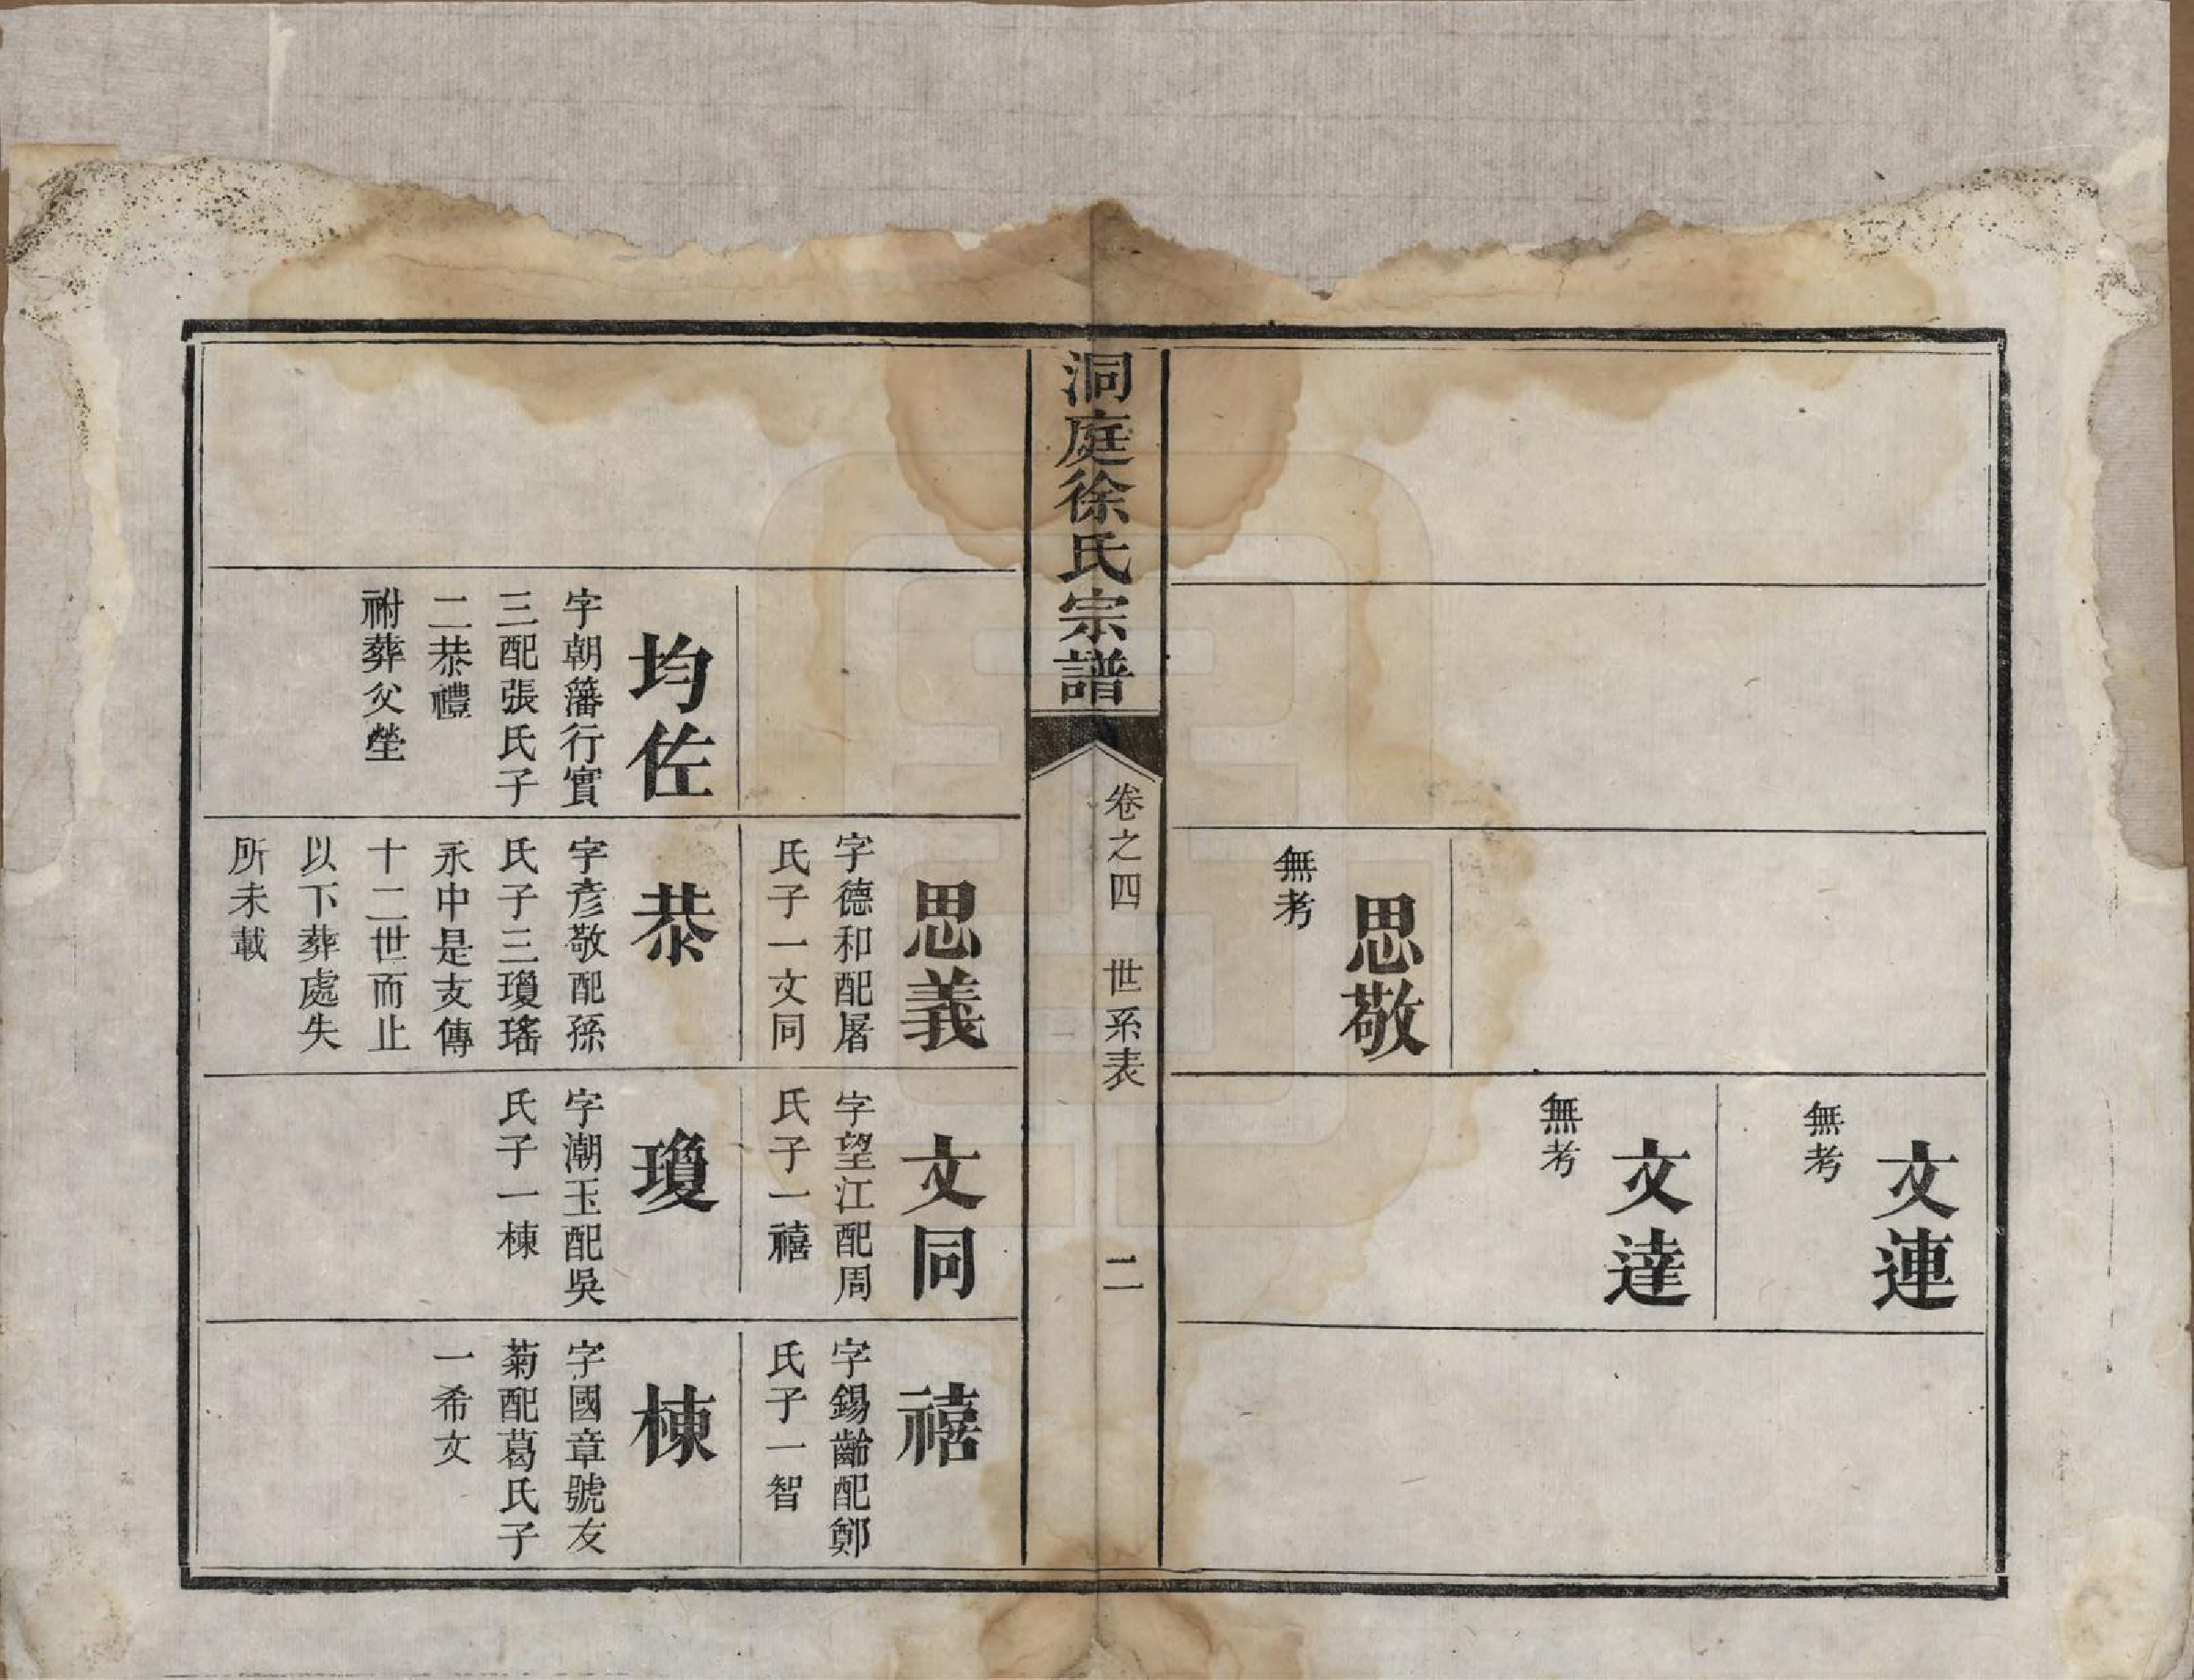 文連
無考
文達
無考
思敬
無考
洞庭徐氏宗譜
卷之四 世系表
二
思義
字德和配屠
氏子一文同
文同
字望江配周
氏子一禧
禧
字錫齡配鄭
氏子一智
均佐
字朝藩行實
三配張氏子
二恭禮
祔葬父塋
恭
字彥敬配孫
氏子三瓊瑤
永中是支傳
十二世而止
以下葬處失
所未載
瓊
字潮玉配吳
氏子一棟
棟
字國章號友
菊配葛氏子
一希文